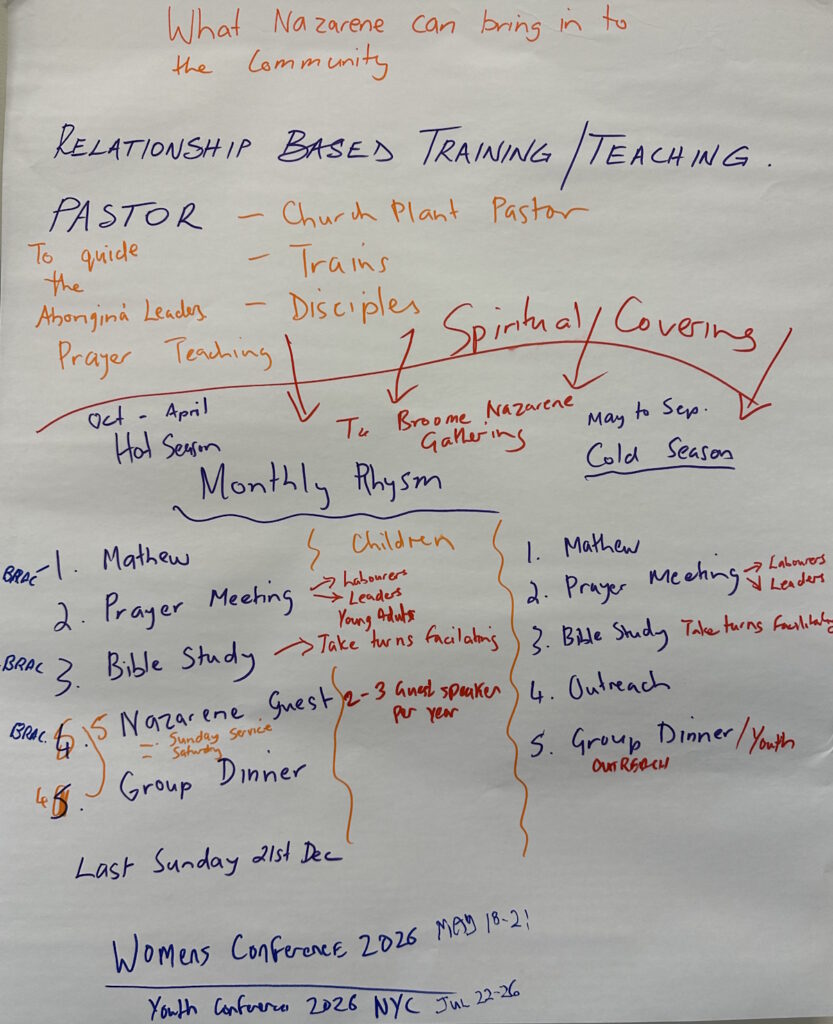 What Nazarene can bring in to
the Community
RELATIONSHIP BASED TRAINING/TEACHING.
PASTOR - Church Plant Pastor
To guide
the
Aborigina Leaders
Prayer Teaching
- Trains
- Disciples
Spiritual Covering
Oct - April
Hot Season
To Broome Nazarene
Gathering
May to Sep.
Cold Season
Monthly Rhysm
Children
BRAC - 1. Mathew
2. Prayer Meeting → Labourers
→ Leaders
Young Adults
BRAC 3. Bible Study → Take turns Facilating
BRAC. 4. 5 Nazarene Guest 2-3 Guest speaker
per year
- Sunday Service
= Saturday
4 5. Group Dinner
1. Mathew
2. Prayer Meeting → Labourers
↘ Leaders
3. Bible Study Take turns Facilitating
4. Outreach
5. Group Dinner/Youth
OUTREACH
Last Sunday 21st Dec
Womens Conference 2026 May 18-21
Youth Conference 2026 NYC Jul 22-26